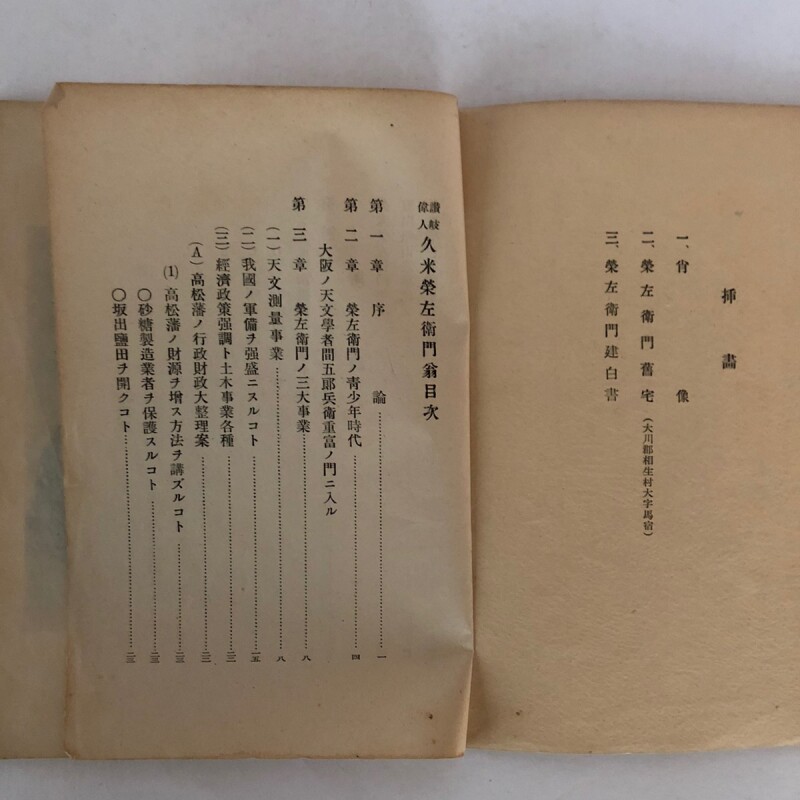 挿畫
一、肖像
二、榮左衛門舊宅(大川郡相生村大字馬宿)
三、榮左衛門建白書
讃岐偉人 久米榮左衛門翁目次
第一章 序論……一
第二章 榮左衛門ノ靑少年時代……四
大阪ノ天文學者間五郞兵衛重富ノ門ニ入ル
第三章 榮左衛門ノ三大事業……八
(一)天文測量事業……八
(二)我國ノ軍備ヲ强盛ニスルコト……一五
(三)經濟政策强調ト土木事業各種……二三
(A)高松藩ノ行政財政大整理案……二三
(1)高松藩ノ財源ヲ增ス方法ヲ講ズルコト……二三
〇砂糖製造業者ヲ保護スルコト……二三
〇坂出鹽田ヲ開クコト……二三